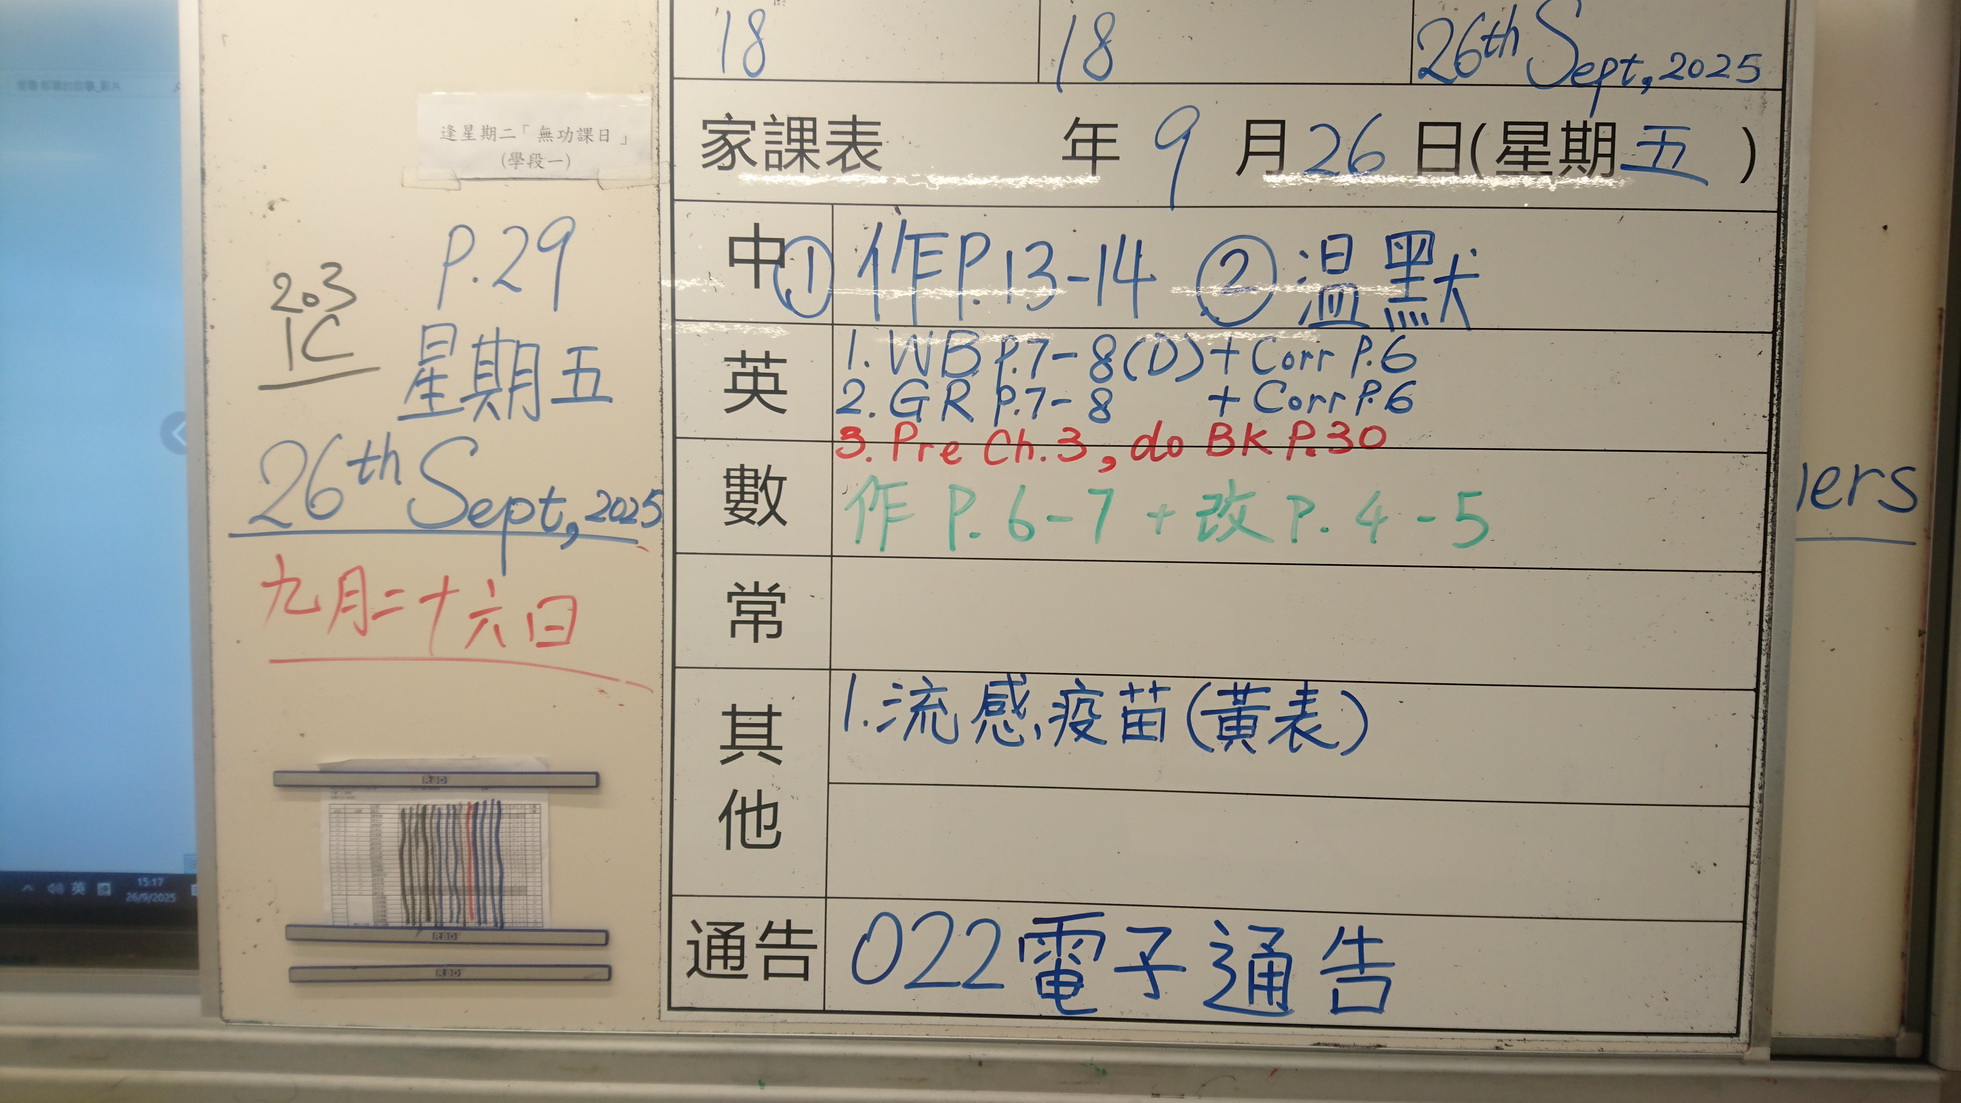 18 18 26th Sept, 2025
家課表 年 9 月 26 日(星期 五 )
中 ① 作P.13-14 ② 溫默
英 1. WB P.7-8(D)+Corr P.6
2. GR P.7-8 +Corr P.6
3. Pre Ch.3, do BK P.30
數 作 P. 6-7 + 改 P. 4-5
常
其他 1.流感疫苗(黃表)
通告 022電子通告
逢星期二「無功課日」
(學段一)
P.29
203
1C
星期五
26th Sept, 2025
九月二十六日
英
15:17
26/9/2025
ers